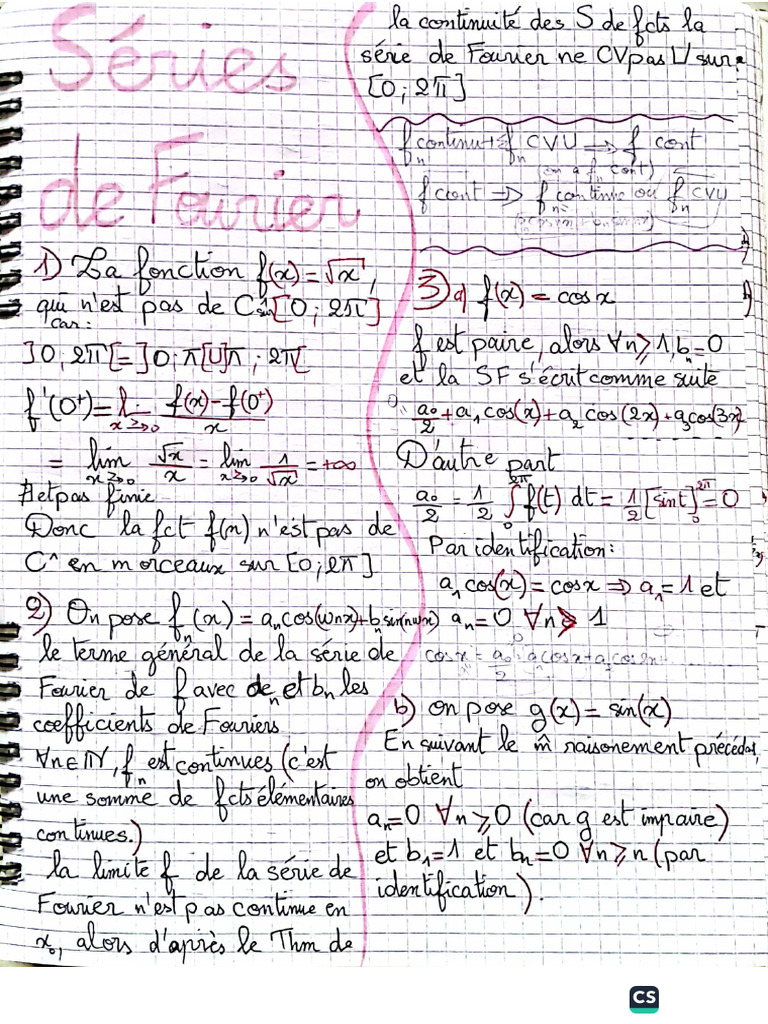 Séries
de Fourier
1) La fonction f(x) = √x,
qui n'est pas de C¹ sur [0; 2π]
car:
]0, 2π[ = ]0; π[ U ]π; 2π[
f'(0⁺) = lim x→0 f(x) - f(0⁺) / x
= lim x→0 √x / x = lim x→0 1 / √x = +∞
∄ et pas finie
Donc la fct f(x) n'est pas de
C¹ en morceaux sur [0; 2π]
2) On pose fₙ(x) = aₙcos(ωnx) + bₙsin(nωx)
le terme général de la série de
Fourier de f avec aₙ et bₙ les
coefficients de Fouriers
∀n∈ℕ, fₙ est continues (c'est
une somme de fcts élémentaires
continues.)
la limite f de la série de
Fourier n'est pas continue en
x₀, alors d'après le Thm de
la continuité des S de fcts la
série de Fourier ne CV pas U sur
[0; 2π]
fₙ continu + fₙ CVU ⟹ f cont
(on a fₙ cont)
f cont ⟹ fₙ continue ou fₙ CVU
3) a) f(x) = cos x
f est paire, alors ∀n⩾1, bₙ = 0
et la SF s'écrit comme suite
a₀/2 + a₁cos(x) + a₂cos(2x) + a₃cos(3x)
D'autre part
a₀/2 = 1/2 ∫₀^2π f(t) dt = 1/2 [sin t]₀^2π = 0
Par identification:
a₁cos(x) = cos x ⟹ a₁ = 1 et
aₙ = 0 ∀n > 1
cos x = a₀/2 + a₁cos x + a₂cos 2x ...
b) on pose g(x) = sin(x)
En suivant le m̂ raisonement précédat,
on obtient
aₙ = 0 ∀n⩾0 (car g est impaire)
et b₁ = 1 et bₙ = 0 ∀n⩾n (par
identification).
CS